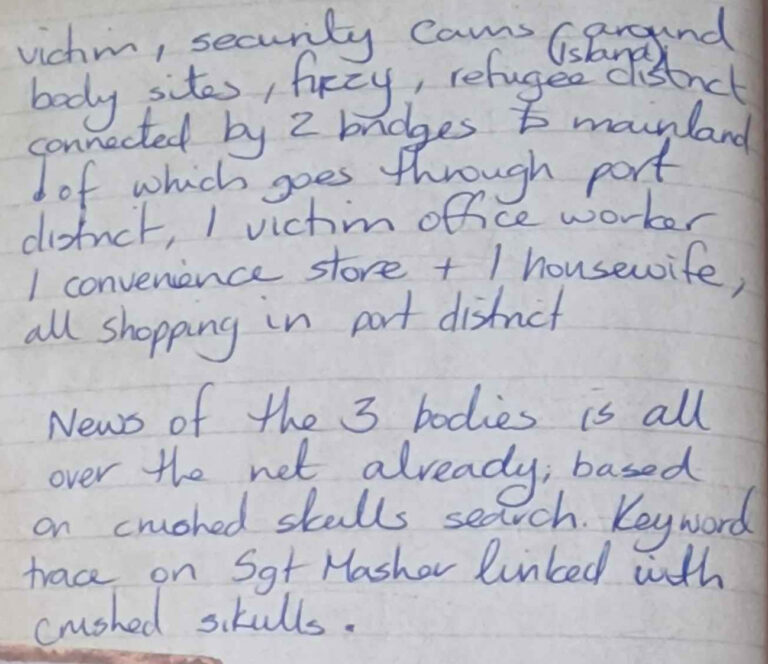 victim, security cams around
(island)
body sites, fuzzy, refugee district
connected by 2 bridges to mainland
1 of which goes through port
district, 1 victim office worker
1 convenience store + 1 housewife,
all shopping in port district
News of the 3 bodies is all
over the net already, based
on crushed skulls search. Keyword
trace on Sgt Mashor linked with
crushed skulls.